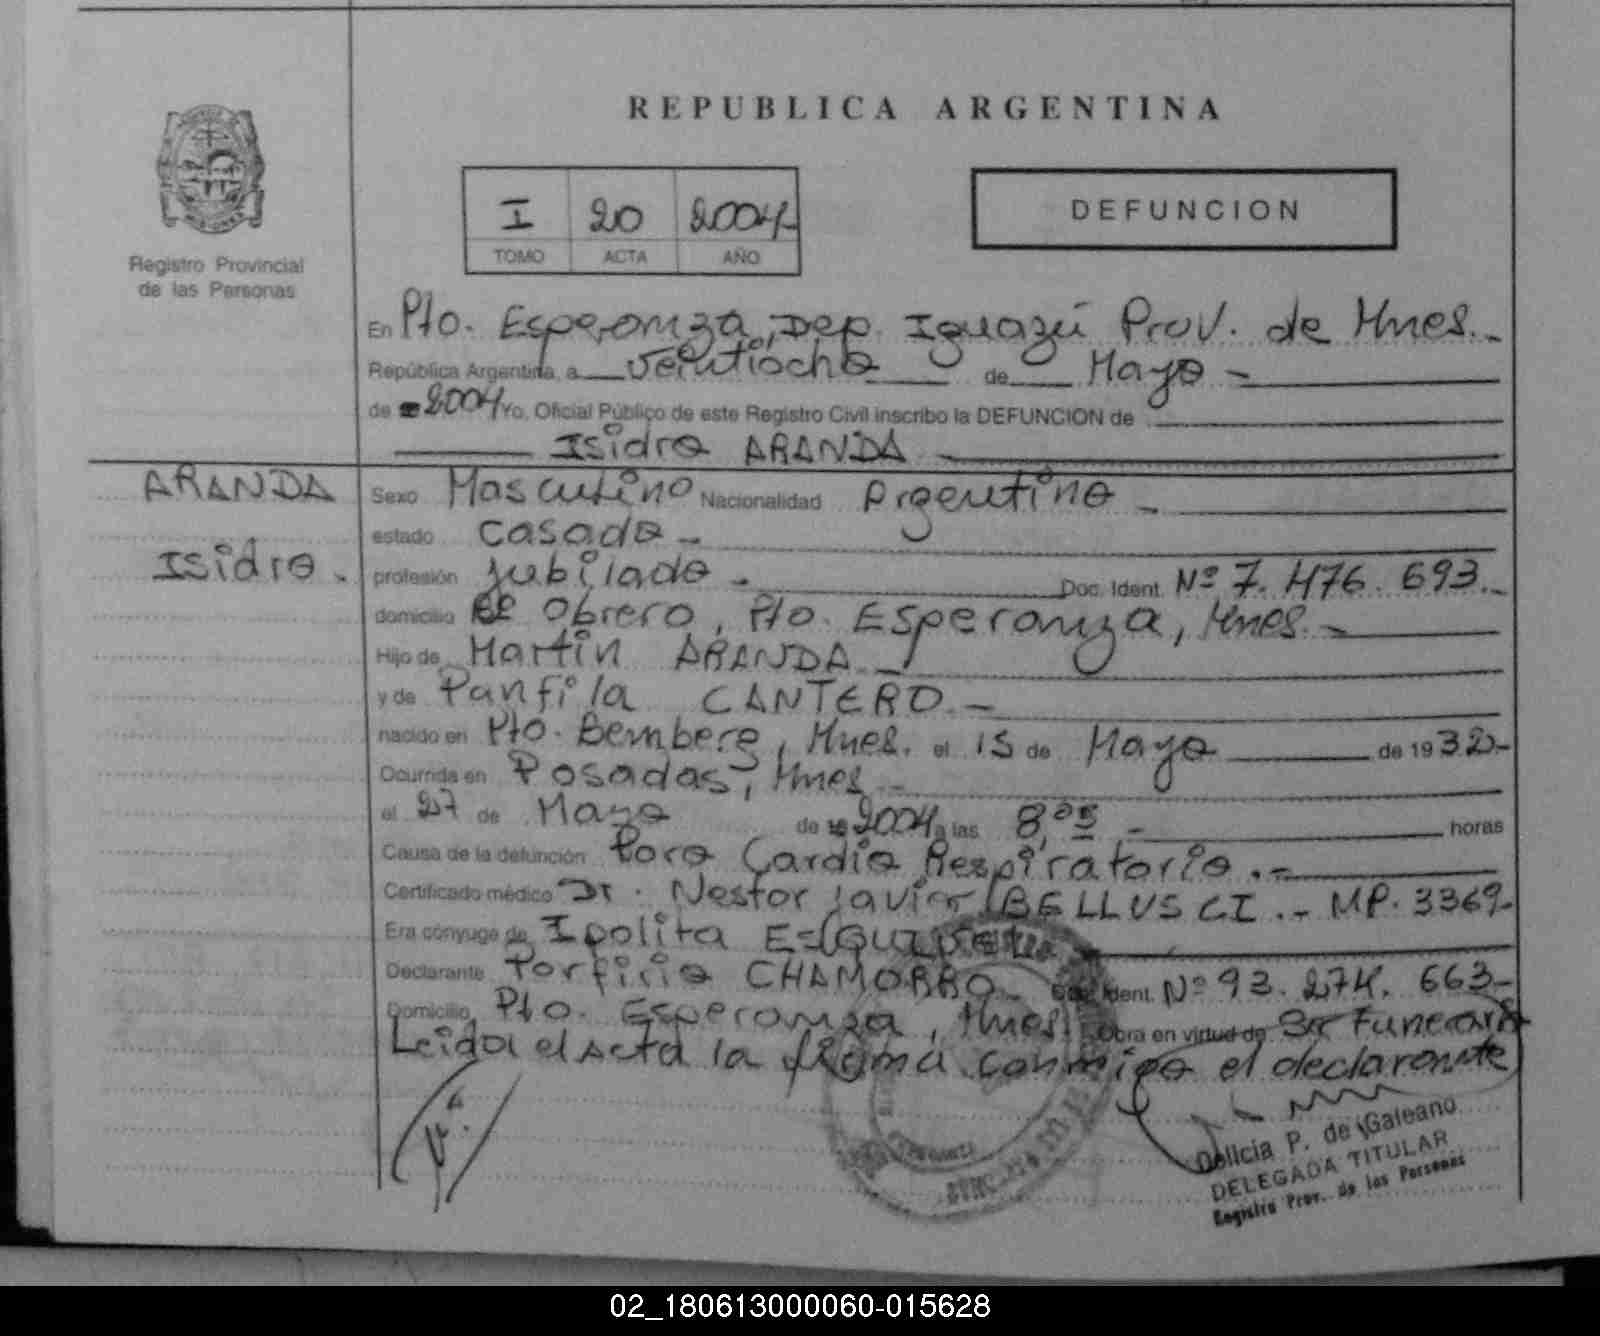 REPUBLICA ARGENTINA
Registro Provincial
de las Personas
I 20 2004
TOMO ACTA AÑO
DEFUNCION
En Pto. Esperanza, Dep. Iguazú Prov. de Mnes.-
República Argentina, a veintiocho de Mayo -
de 2004 Yo, Oficial Público de este Registro Civil inscribo la DEFUNCION de
Isidro ARANDA
ARANDA
Isidro.
Sexo Masculino Nacionalidad Argentino -
estado casado -
profesión jubilado - Doc. Ident. Nº 7.476.693.-
domicilio Bº Obrero, Pto. Esperanza, Mnes.-
Hijo de Martín ARANDA -
y de Panfila CANTERO.-
nacido en Pto. Bemberg, Mnes. el 15 de Mayo de 1932-
Ocurrida en Posadas, Mnes -
el 27 de Mayo de 2004 a las 8,05 - horas
Causa de la defunción Paro Cardio Respiratorio.-
Certificado médico Dr. Nestor Javier BELLUSCI.- MP. 3369-
Era cónyuge de Ipolita ESQUIVEL
Declarante Porfirio CHAMORRO - Doc. Ident. Nº 93.274.663-
Domicilio Pto. Esperanza, Mnes. Obra en virtud de Ser Funeraria
Leida el Acta la firma conmigo el declarante
Delicia P. de Galeano
DELEGADA TITULAR
Registro Prov. de las Personas
02_180613000060-015628